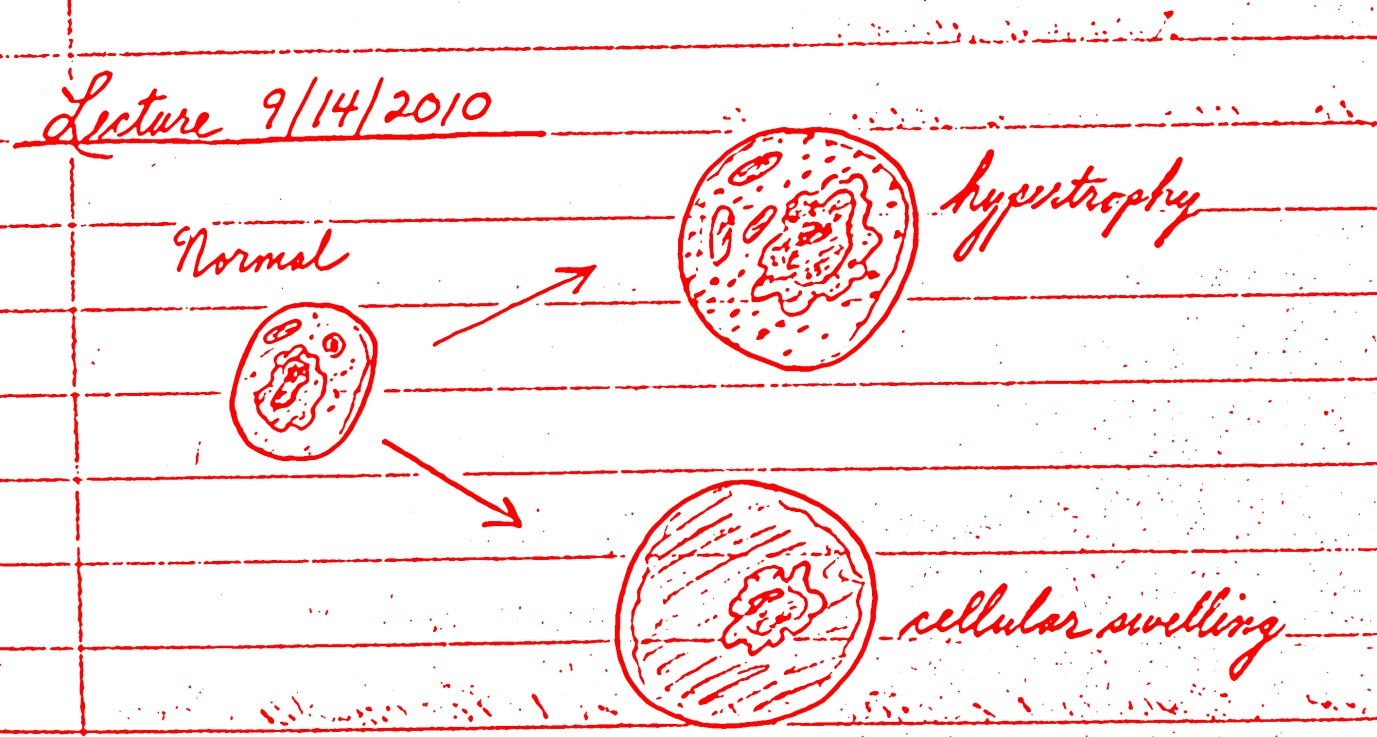 Lecture 9/14/2010
Normal
hypertrophy
cellular swelling